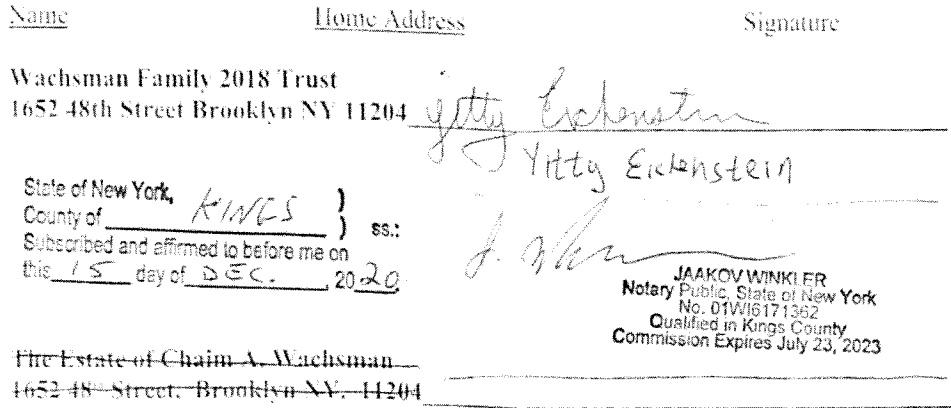 Name Home Address Signature
Wachsman Family 2018 Trust
1652 48th Street Brooklyn NY 11204 Yitty Eichenstein
Yitty Eichenstein
State of New York, )
County of KINGS ) ss.:
Subscribed and affirmed to before me on
this 15 day of DEC. , 2020
JAAKOV WINKLER
Notary Public, State of New York
No. 01WI6171362
Qualified in Kings County
Commission Expires July 23, 2023
The Estate of Chaim A. Wachsman
1652 48th Street, Brooklyn NY, 11204